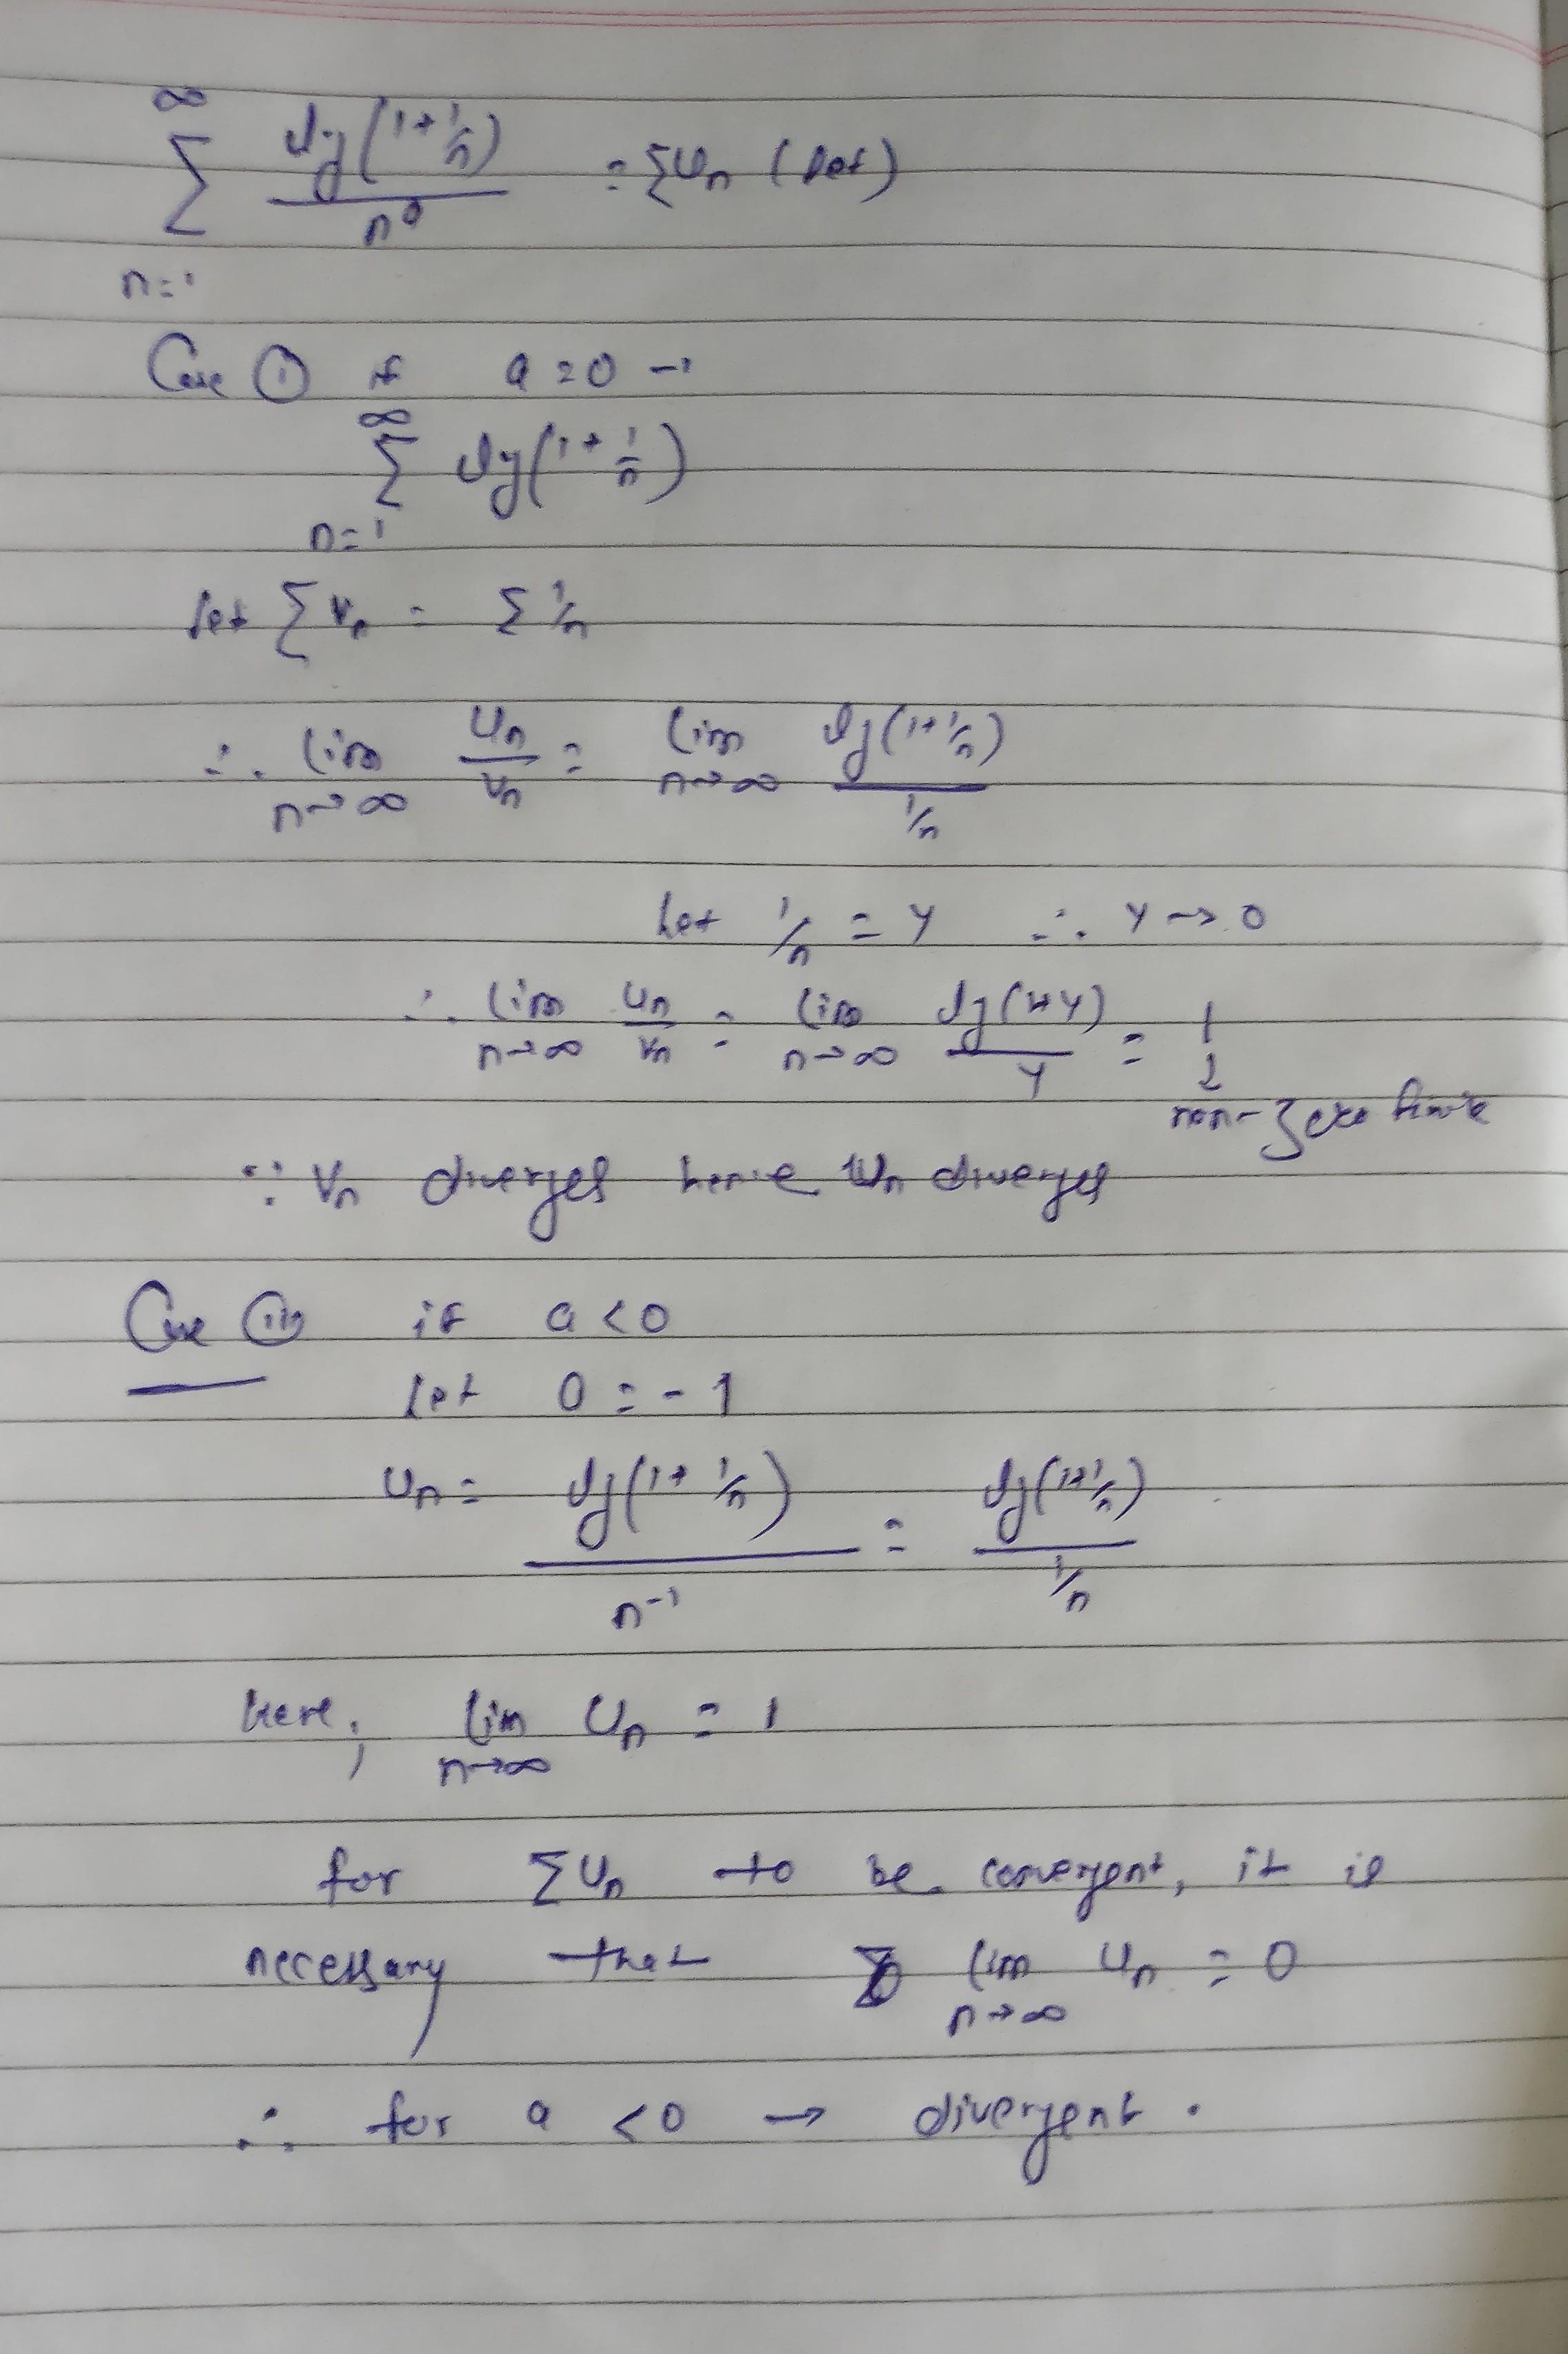 ∞
Σ log(1+1/n) / n^a = ΣUn (let)
n=1
Case (i) if a=0 →
∞
Σ log(1+1/n)
n=1
let Σvn = Σ1/n
∴ lim n→∞ Un/vn = lim n→∞ log(1+1/n) / 1/n
let 1/n = y ∴ y→0
∴ lim n→∞ Un/vn = lim n→∞ log(1+y)/y = 1
non-zero finite
∵ vn diverges hence Un diverges
Case (ii) if a<0
let a=-1
Un = log(1+1/n) / n^-1 = log(1+1/n) / 1/n
here, lim n→∞ Un = 1
for ΣUn to be convergent, it is
necessary that lim n→∞ Un = 0
∴ for a <0 → divergent.